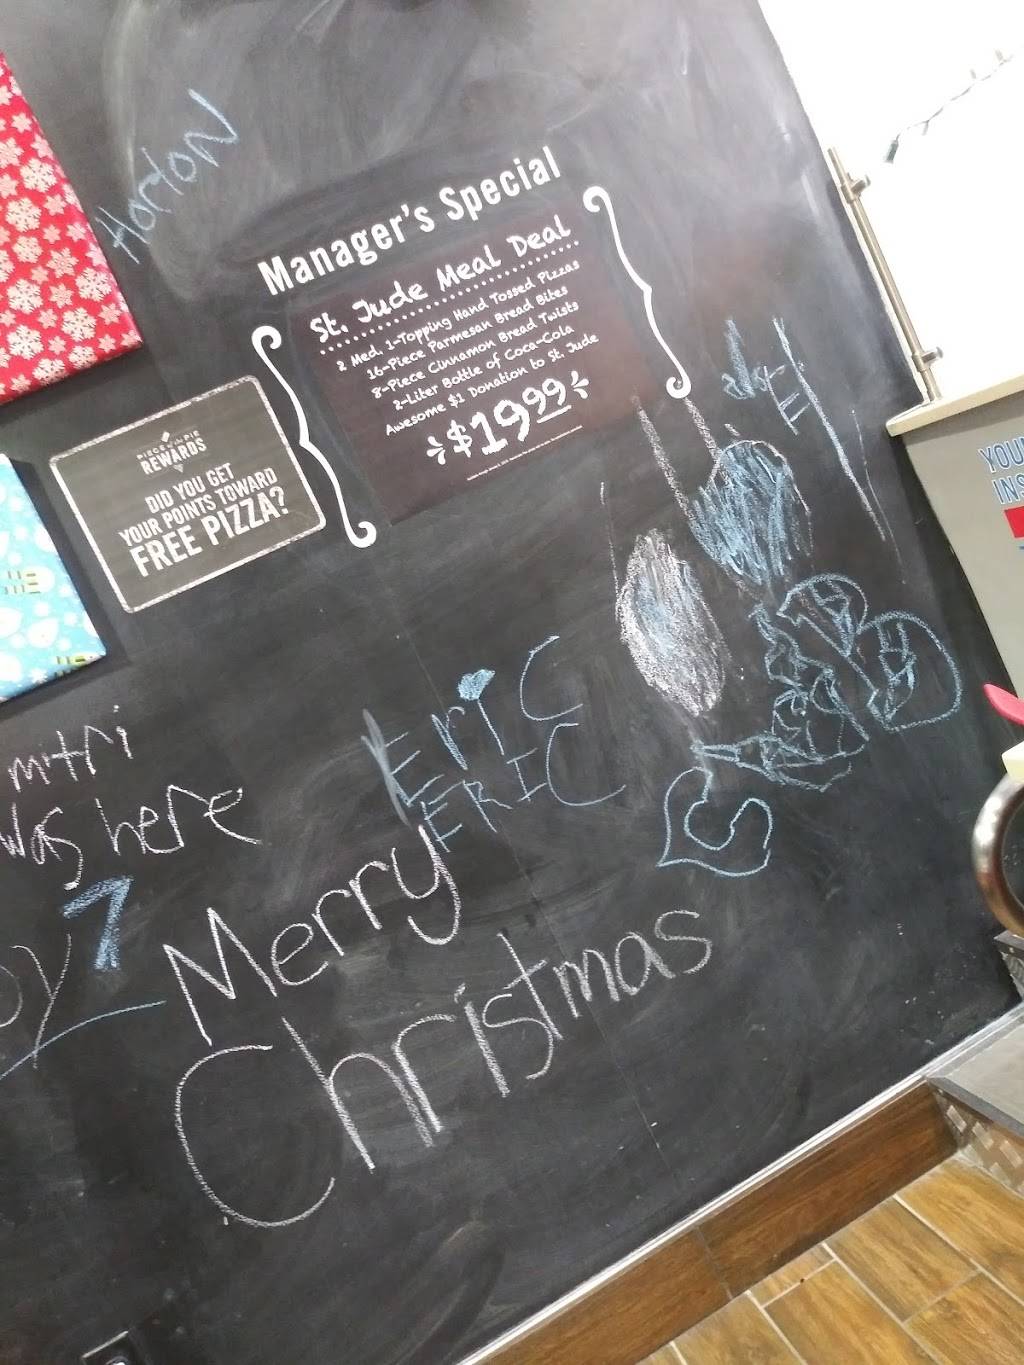 HortoN
Manager's Special
St. Jude Meal Deal
2 Med. 1-Topping Hand Tossed Pizzas
16-Piece Parmesan Bread Bites
8-Piece Cinnamon Bread Twists
2-Liter Bottle of Coca-Cola
Awesome $1 Donation to St. Jude
$19.99
PIECE OF THE PIE
REWARDS
DID YOU GET
YOUR POINTS TOWARD
FREE PIZZA?
YOU
INS
mitri
was here
EriC
ERIC
7
oy
Merry
Christmas